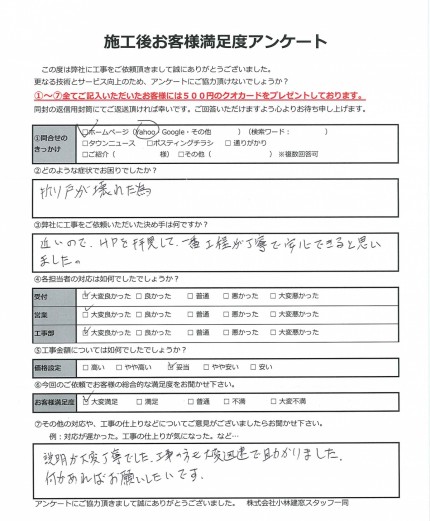 施工後お客様満足度アンケート
この度は弊社に工事をご依頼頂きまして誠にありがとうございました。
更なる技術とサービス向上のため、アンケートにご協力頂けないでしょうか？
①～⑦全てご記入いただいたお客様には５００円のクオカードをプレゼントしております。
同封の返信用封筒にてご返送頂ければ幸いです。ご回答いただけますよう心よりお待ち申し上げます。
①問合せのきっかけ
☑ホームページ（Yahoo・Google・その他　　　）（検索ワード：　　　）
□タウンニュース　□ポスティングチラシ　□通りがかり
□ご紹介（　　　様）□その他（　　　）※複数回答可
②どのような症状でお困りでしたか？
折り戸が壊れた為
③弊社に工事をご依頼いただいた決め手は何ですか？
近いので、HPを拝見して、一番工程が丁寧で安心できると思い
ましたの
④各担当者の対応は如何でしたでしょうか？
受付　☑大変良かった　□良かった　□普通　□悪かった　□大変悪かった
営業　☑大変良かった　□良かった　□普通　□悪かった　□大変悪かった
工事部　☑大変良かった　□良かった　□普通　□悪かった　□大変悪かった
⑤工事金額については如何でしたでしょうか？
価格設定　□高い　□やや高い　☑妥当　□やや安い　□安い
⑥今回のご依頼でお客様の総合的な満足度をお聞かせ下さい。
お客様満足度　☑大変満足　□満足　□普通　□不満　□大変不満
⑦その他の対応や、工事の仕上りなどについてご意見がございましたらお聞かせ下さい。
例：対応が遅かった。工事の仕上りが気になった。など…
説明が大変丁寧でした。工事の方も大変迅速で助かりました。
何かあればお願いしたいです。
アンケートにご協力頂きまして誠にありがとうございました。　株式会社小林建窓スタッフ一同